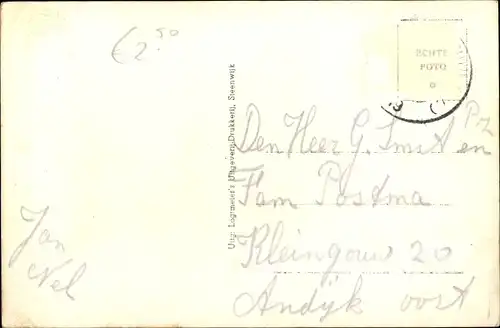 € 2.50
ECHTE
FOTO
Uitg. Logtmeier's Uitgeverij-Drukkerij, Steenwijk
Den Heer G. Smit Pz
en
Fam Postma
Kleingouw 20
Andijk oost
Jan
Nel